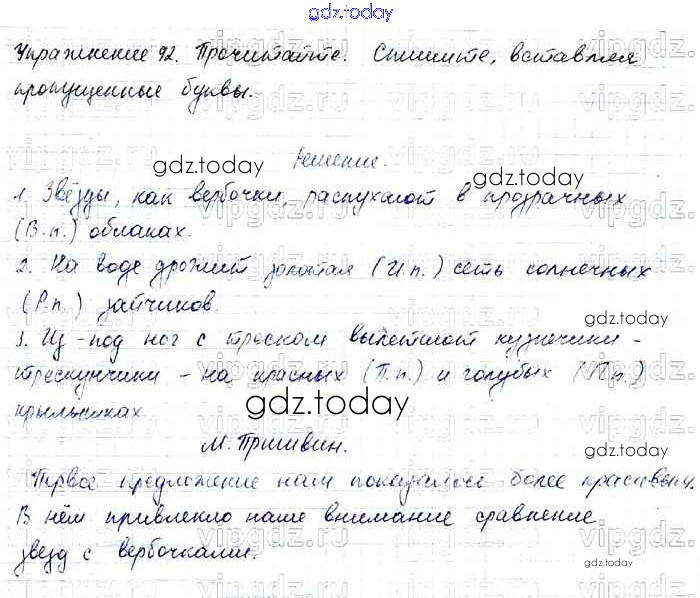 gdz.today
Упражнение 92. Прочитайте. Спишите, вставляя
пропущенные буквы.
gdz.today
Решение.
gdz.today
1. Звёзды, как вербочки, распухают в прозрачных
(В.п.) облаках.
2. На воде дрожит золотая (И.п.) сеть солнечных
(Р.п.) зайчиков.
gdz.today
3. Из-под ног с треском вылетают кузнечики-
трескунчики - на красных (П.п.) и голубых (П.п.)
крылышках.
gdz.today
М. Пришвин.
gdz.today
Первое предложение нам показалось более красивым.
В нём привлекло наше внимание сравнение
звезд с вербочками.
gdz.today
gdz.today